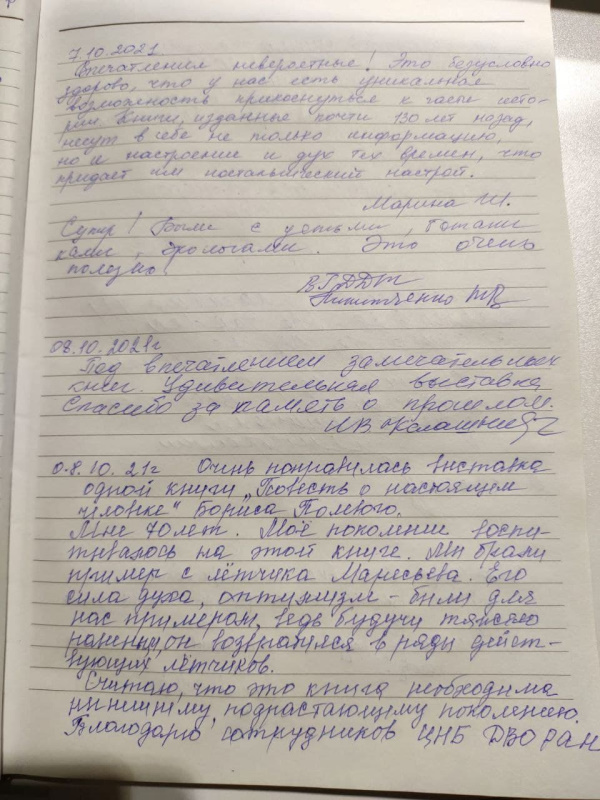 7.10.2021
Впечатления невероятные! Это безусловно
здорово, что у нас есть уникальная
возможность прикоснуться к части исто-
рии. Книги, изданные почти 130 лет назад,
несут в себе не только информацию,
но и настроение и дух тех времен, что
придает им ностальгический настрой.
Марина Ш.
Супер! Были с детьми,
Это очень
полезно!
Никитченко
08.10.2021г
Под впечатлением замечательных
книг. Удивительная выставка
Спасибо за память о прошлом.
08.10.21г Очень понравилась выставка
одной книги „Повесть о настоящем
человеке" Бориса Полевого.
Мне 70 лет. Моё поколение воспи-
тывалось на этой книге. Мы брали
пример с лётчика Маресьева. Его
сила духа, оптимизм - были для
нас примером, ведь будучи тяжело
раненным он возвратился в ряды дейст-
вующих лётчиков.
Считаю, что это книга необходима
нынешнему, подрастающему поколению.
Благодарю сотрудников ЦНБ ДВО РАН